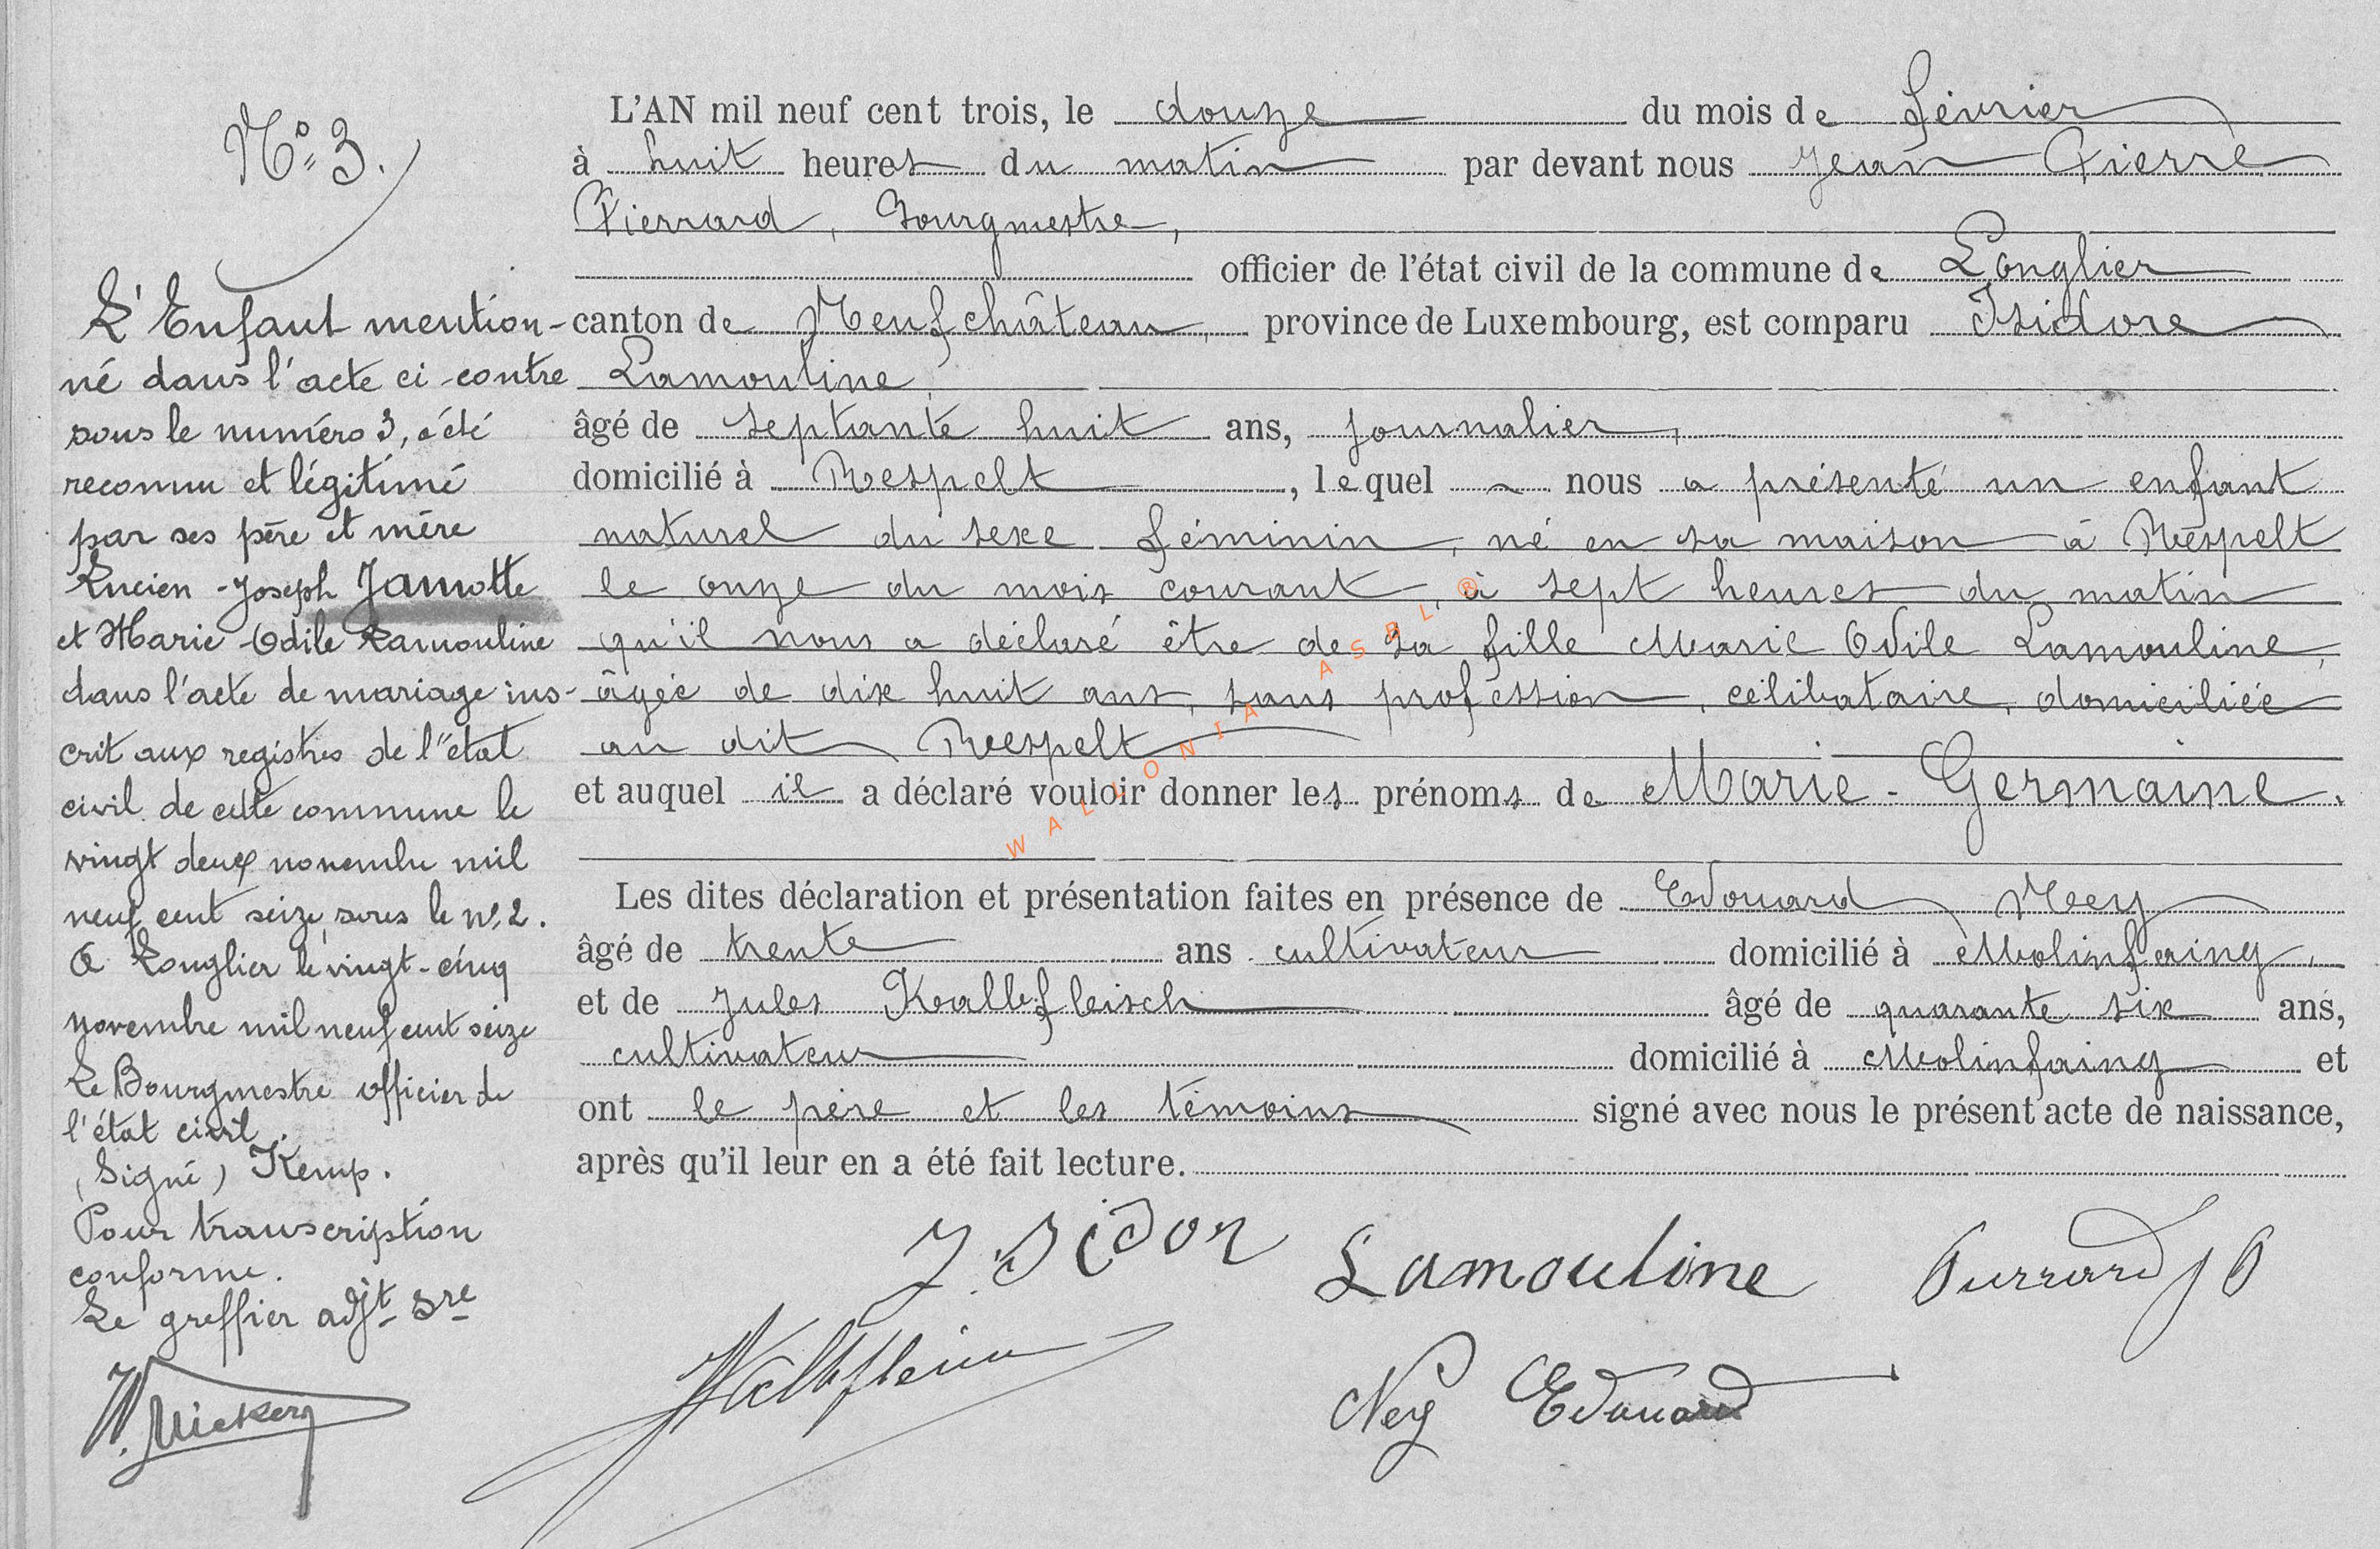 N° 3.
L'Enfant mention-
né dans l'acte ci-contre
sous le numéro 3, a été
reconnu et légitimé
par ses père et mère
Lucien-Joseph Jamotte
et Marie-Odile Lamouline
dans l'acte de mariage ins-
crit aux registres de l'état
civil de cette commune le
vingt deux novembre mil
neuf cent seize, sous le n° 2.
A Longlier le vingt-cinq
novembre mil neuf cent seize
Le Bourgmestre officier de
l'état civil.
(Signé) Kemp.
Pour transcription
conforme.
Le greffier adjt sre
L'AN mil neuf cent trois, le douze du mois de février
à huit heures du matin par devant nous Jean Pierre
Pierrard, Bourgmestre,
officier de l'état civil de la commune de Longlier
canton de Neufchâteau, province de Luxembourg, est comparu Isidore
Lamouline,
âgé de septante huit ans, journalier,
domicilié à Respelt, lequel ~ nous a présenté un enfant
naturel du sexe féminin, né en sa maison à Respelt
le onze du mois courant, à sept heures du matin
qu'il nous a déclaré être de sa fille Marie Odile Lamouline,
âgée de dix huit ans, sans profession, célibataire, domiciliée
au dit Respelt
et auquel il a déclaré vouloir donner les prénoms de Marie-Germaine.
Les dites déclaration et présentation faites en présence de Edouard Ney
âgé de trente ans cultivateur domicilié à Molinfaing,
et de Jules Kalbfleisch âgé de quarante six ans,
cultivateur domicilié à Molinfaing et
ont le père et les témoins signé avec nous le présent acte de naissance,
après qu'il leur en a été fait lecture.
WALLONIA ASBL ®
J. Isidor Lamouline Pierrard J P
Kalbfleisch
Ney Edouard